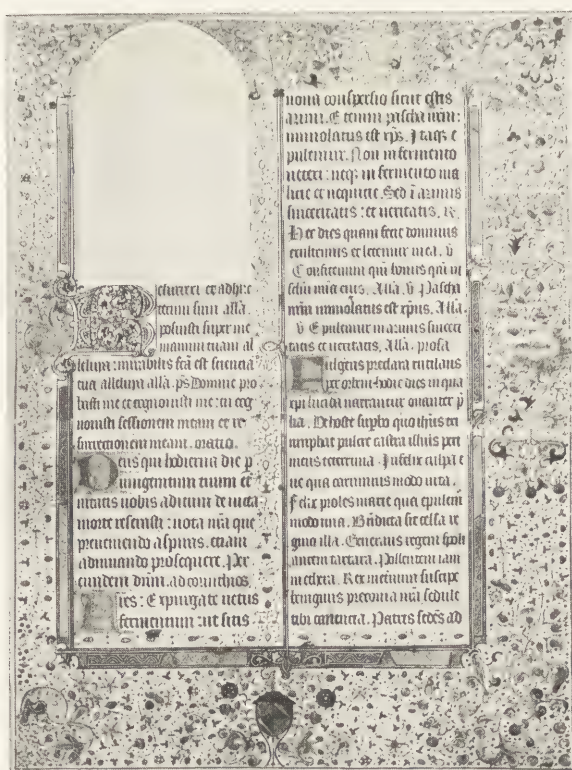 Resurrexi et adhuc
tecum sum alla.
posuisti super me
manum tuam al
leluya: mirabilis fca est sciencia
tua alleluia alla. ps Domine pro
basti me et cognouisti me: tu cog
nouisti sessionem meam et re
surrectionem meam. oratio.
Deus qui hodierna die p
unigenitum tuum et
nitatis nobis aditum deuicta
morte reserasti: uota nra que
preueniendo aspiras. etiam
adiuuando prosequere. Per
eundem dnm. ad corinthios.
Fres: Expurgate uetus
fermentum: ut sitis
noua conspersio sicut estis
azimi. Etenim pascha nrm:
immolatus est xps. Itaq; e
pulemur. Non in fermento
ueteri: neq; in fermento ma
licie et nequicie. Sed i azimis
sinceritatis: et ueritatis. R.
Hec dies quam fecit dominus
exultemus et letemur in ea. v
Confitemini qm bonus qm in
sclm mia eius. Alla. v Pascha
nrm immolatus est xpus. Alla.
v Epulemur in azimis sinceri
tatis et ueritatis, Alla. prosa
Fulgens preclara rutilans
per orbem hodie dies in qua
xpi lucida narrantur ouanter p
lia. De hoste supbo quo ihus tri
umphat pulcre castra illius peri
mens teterrima. Infelix culpa e
ue qua caruimus modo uita.
felix proles marie qua epulem
modo una. Bndicta sit celsa re
gina illa. Generans regem spoli
antem tartara. Pollentem iam
in ethera. Rex in eternum suscipe
benignus preconia nra sedule
tibi canentia. Patris sedes ad